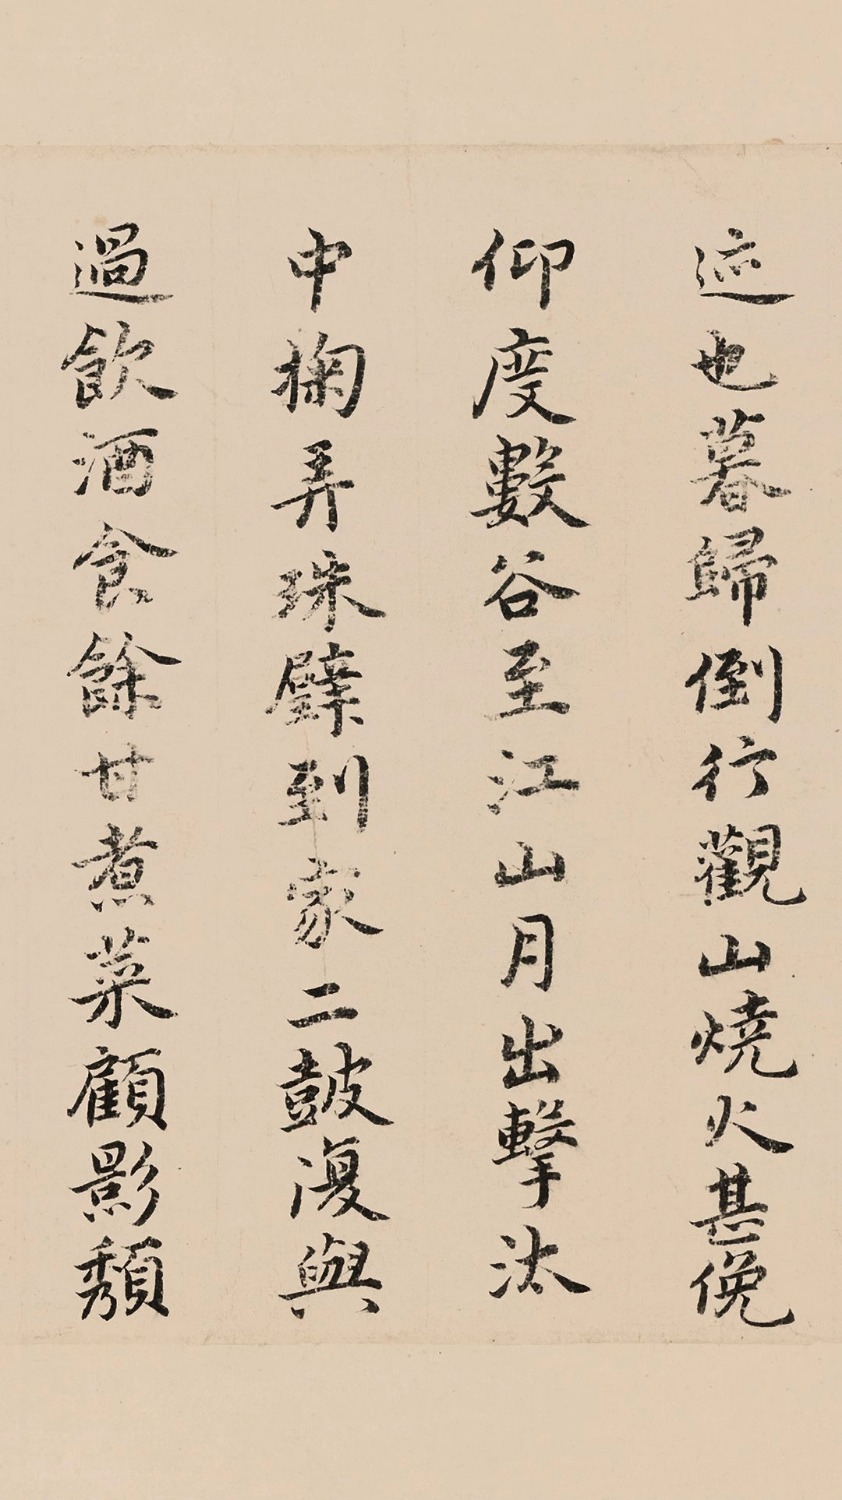 迹也暮歸倒行觀山燒火甚俛
仰度數谷至江山月出擊汰
中掬弄珠璧到家二皷復與
過飲酒食餘甘煮菜顧影頹